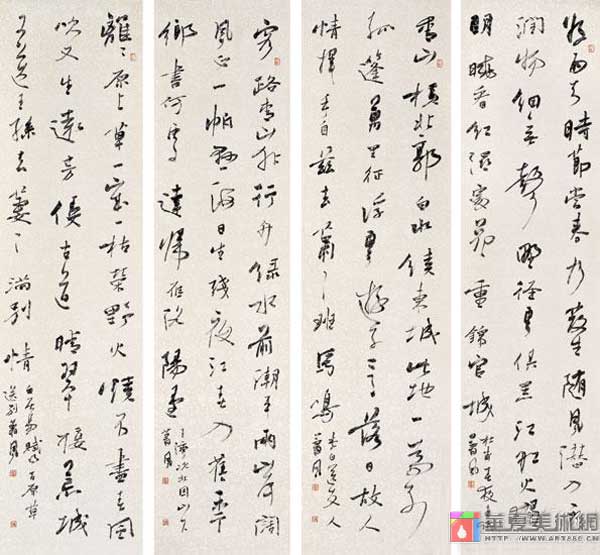 好雨知時節當春乃發生隨風潛入夜
潤物細無聲野徑雲俱黑江船火獨
明曉看紅濕處花重錦官城
杜甫春夜
青山橫北郭白水繞東城此地一為別
孤蓬萬里征浮雲遊子意落日故人
情揮手自茲去蕭々班馬鳴
李白送友人
客路青山外行舟綠水前潮平兩岸闊
風正一帆懸海日生殘夜江春入舊年
鄉書何處達歸雁洛陽邊
王灣次北固山下
離々原上草一歲一枯榮野火燒不盡春風
吹又生遠芳侵古道晴翠接荒城
又送王孫去萋々滿別情
白居易賦得古原草
送別
華夏美術網